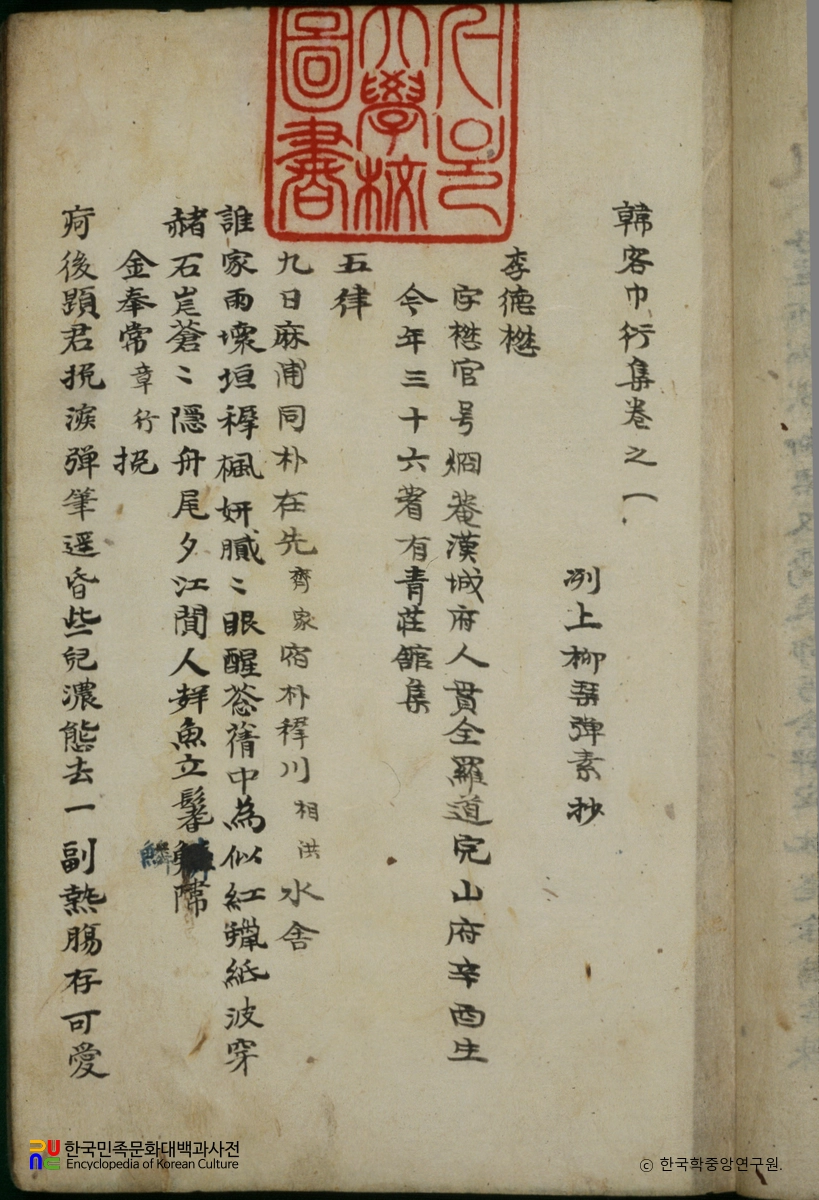 韓客巾衍集卷之一
洌上柳琴彈素抄
李德懋
字懋官号烱菴漢城府人貫全羅道完山府辛酉生
今年三十六著有青莊舘集
五律
九日麻浦同朴在先齊家宿朴穉川相洪水舍
誰家雨壞垣穉楓妍膩〻眼醒蒼蒨中為似紅蠟紙波穿
赭石岸蒼〻隱舟尾夕江閒人群魚立髥鱗際
鱗
金奉常章行挽
病後題君挽淚彈筆遥昏些兒濃態去一副熱膓存可愛
서울大學校圖書
한국민족문화대백과사전
Encyclopedia of Korean Culture
© 한국학중앙연구원.